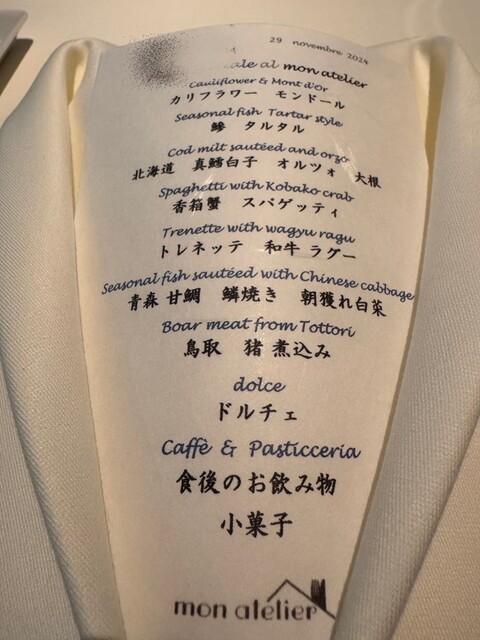 29 novembre 2024
al mon atelier
Cauliflower & Mont d'or
カリフラワー モンドール
Seasonal fish Tartar style
鰺 タルタル
Cod milt sautéed and orzo
北海道 真鱈白子 オルツォ 大根
Spaghetti with Kobako crab
香箱蟹 スパゲッティ
Trenette with wagyu ragu
トレネッテ 和牛 ラグー
Seasonal fish sautéed with Chinese cabbage
青森 甘鯛 鱗焼き 朝獲れ白菜
Boar meat from Tottori
鳥取 猪 煮込み
dolce
ドルチェ
Caffè & Pasticceria
食後のお飲み物
小菓子
mon atélier